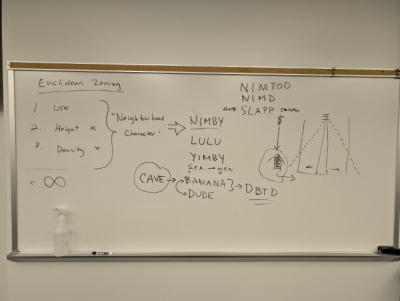 Euclidean Zoning
1. Use
2. Height x
3. Density x
x ∞
"Neighborhood
Character"
NIMBY
LULU
YIMBY
CAVE
BANANA
DUDE
DBTD
NIMTOO
NIMD
Anti SLAPP statutes